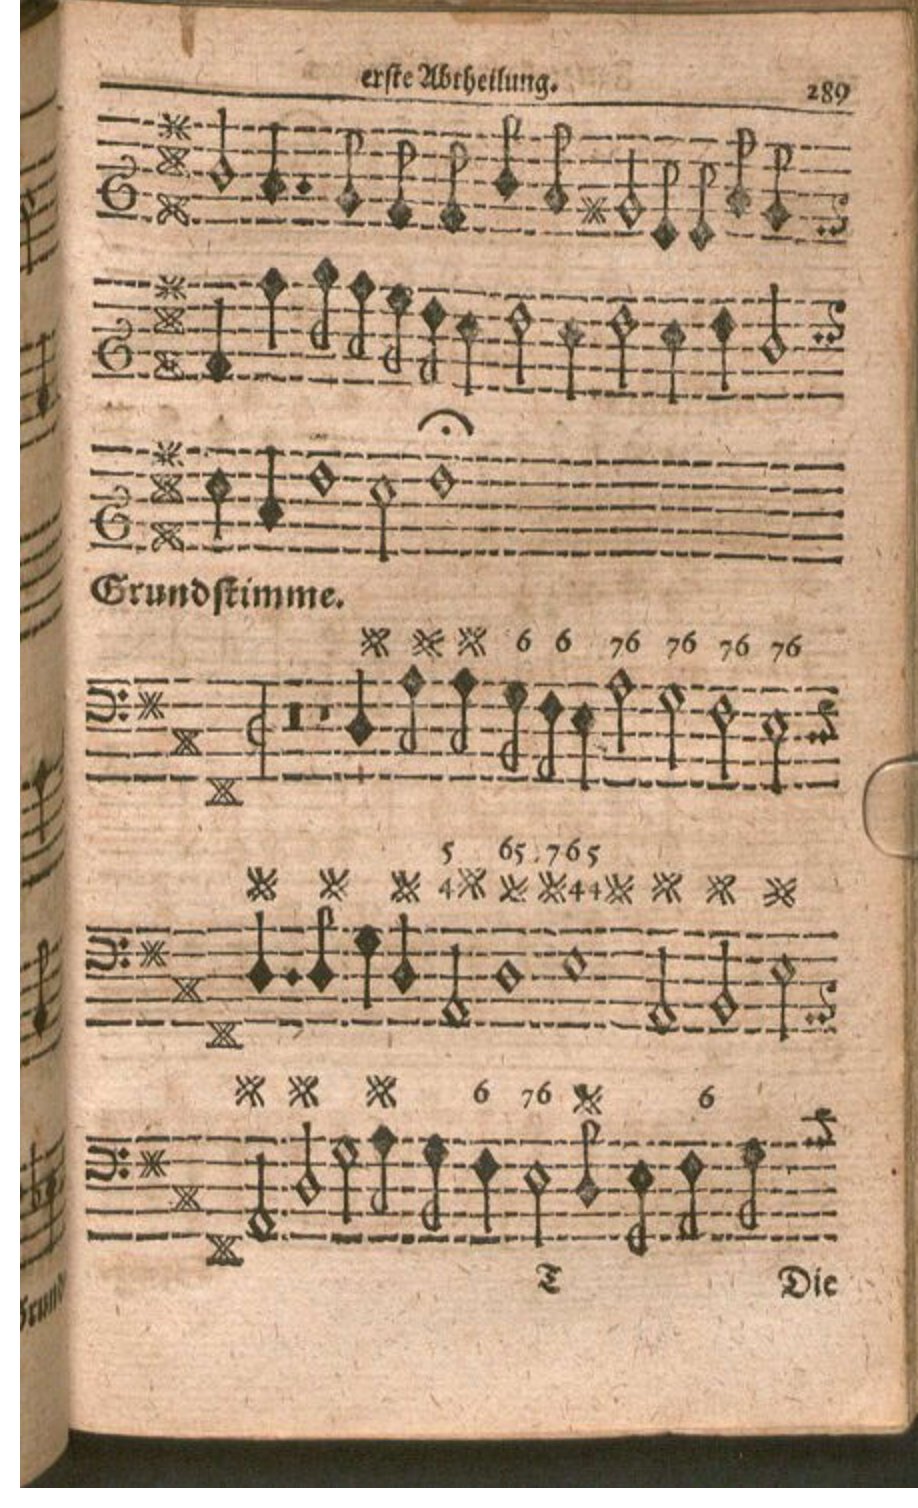 erste Abtheilung.
289
Grundstimme.
6 6 76 76 76 76
5 65 765
4 44
6 76 6
T
Die